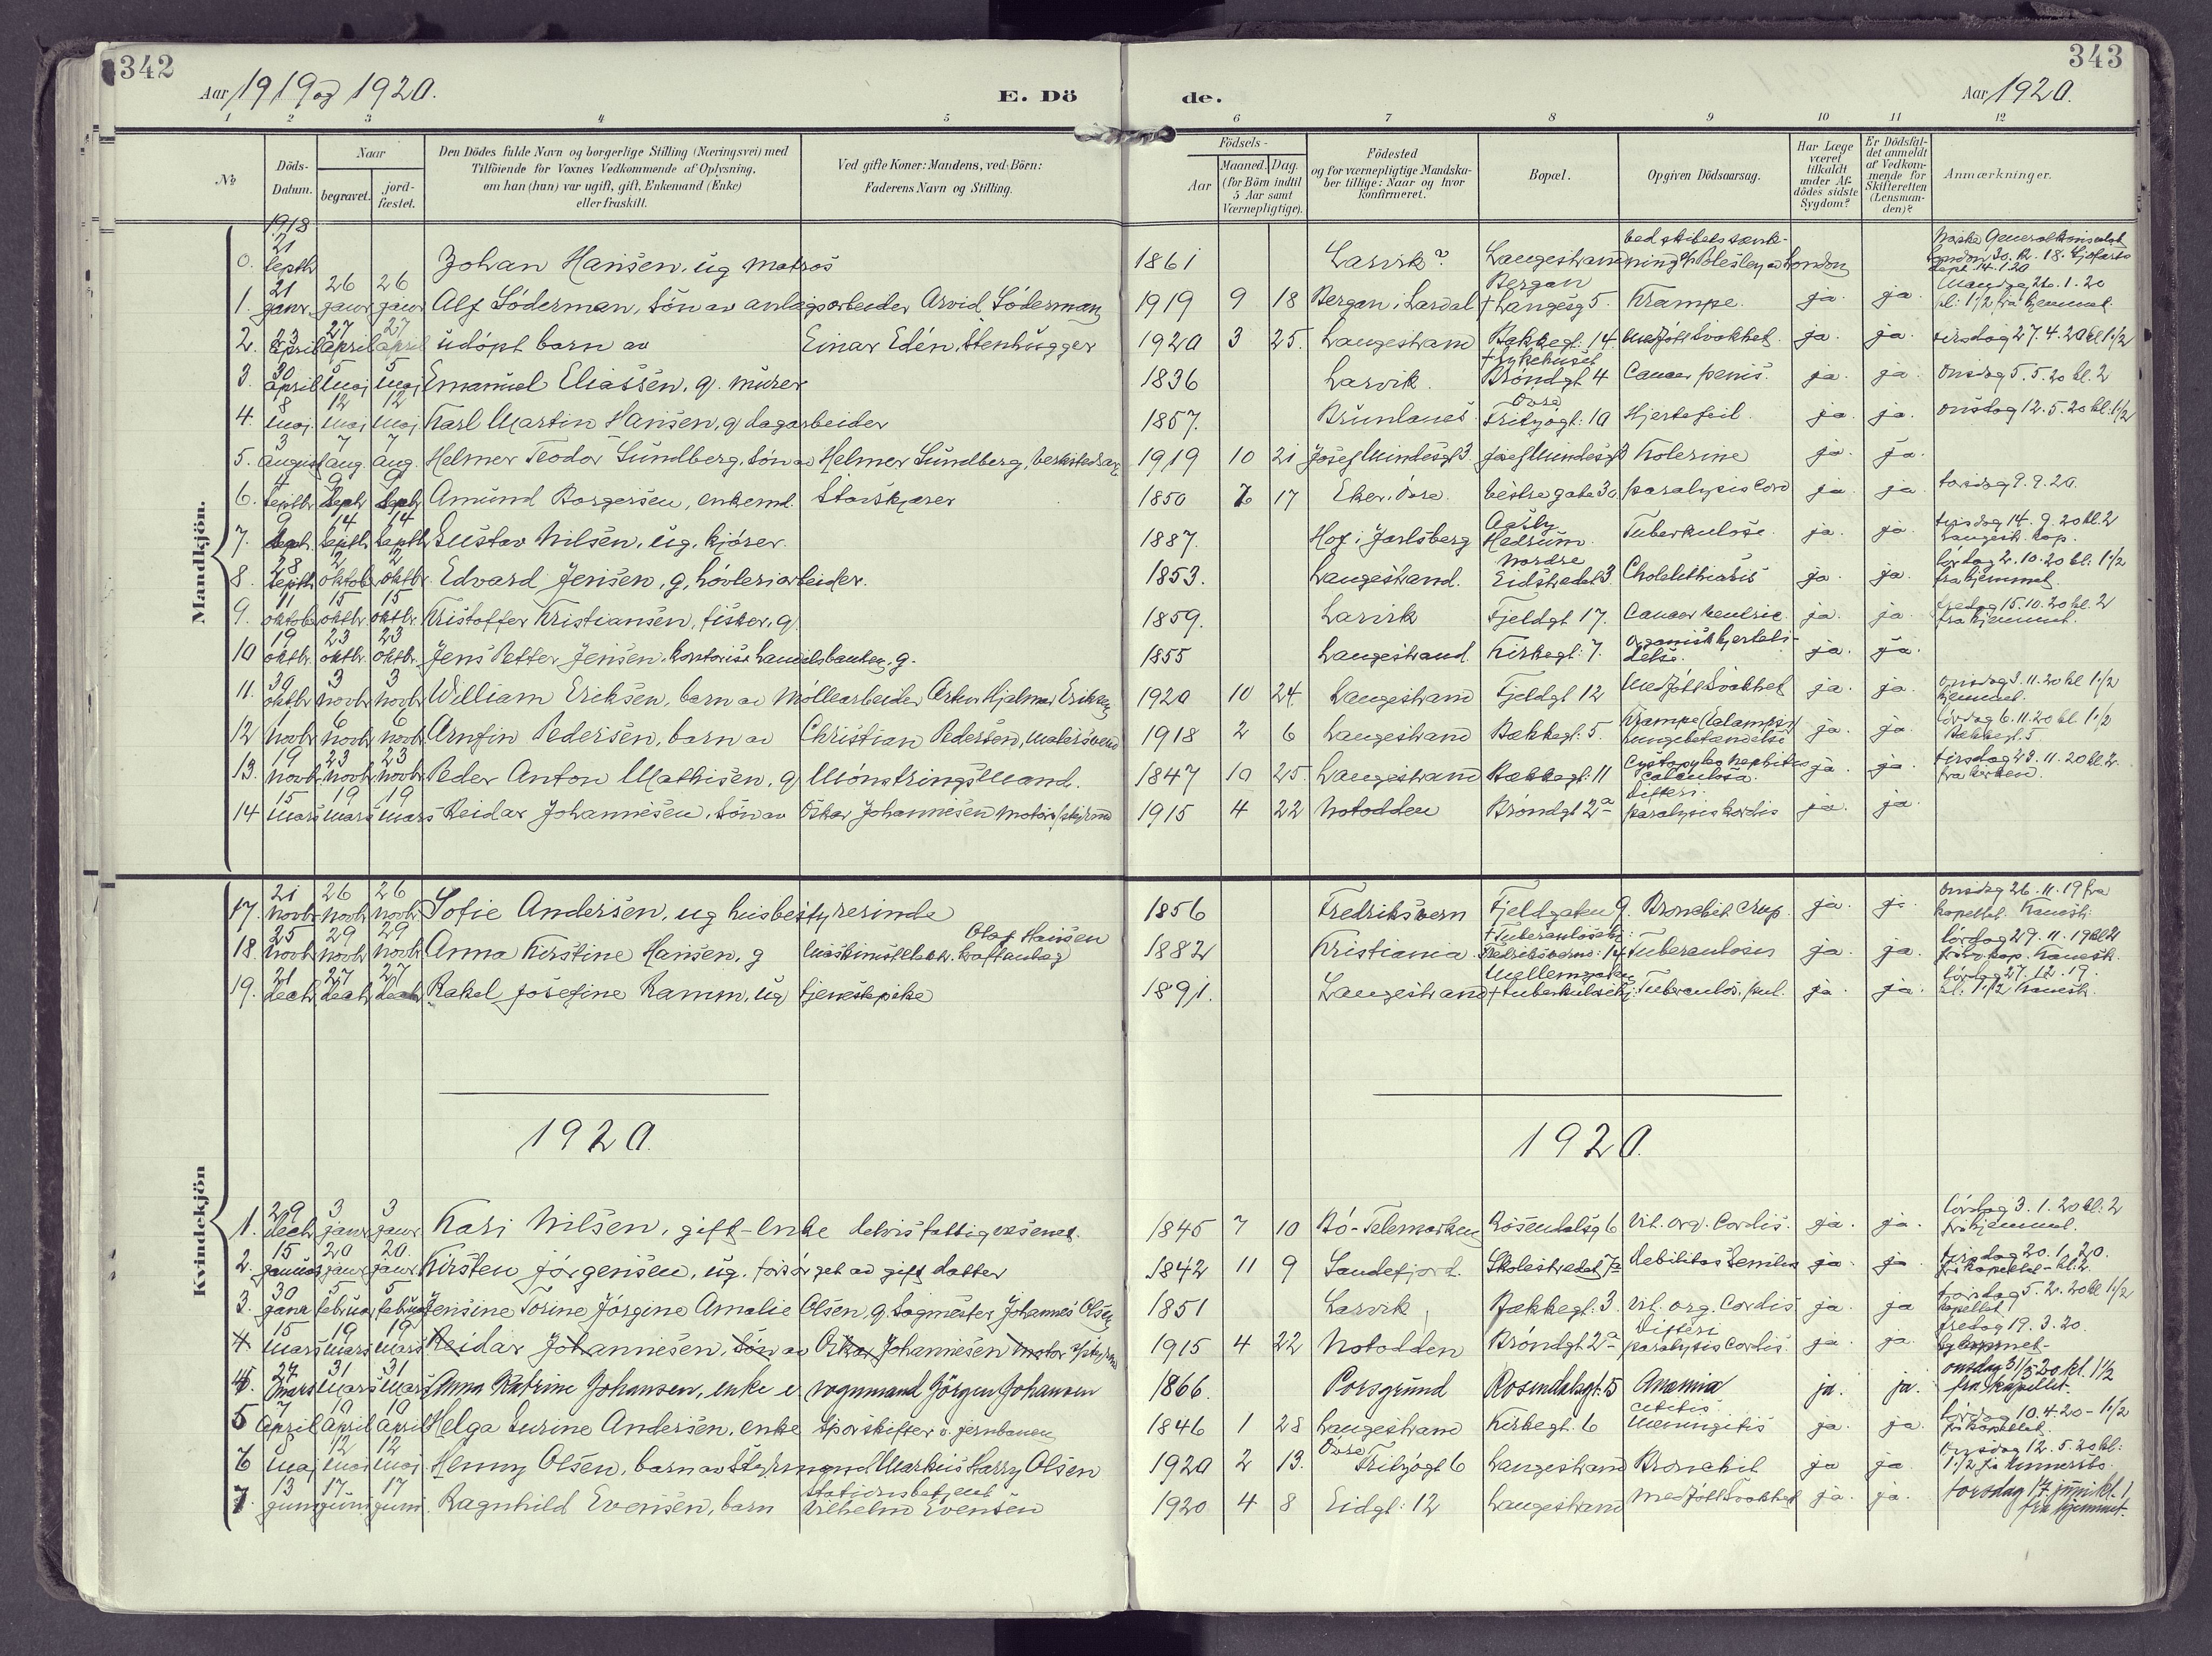 342
Aar 1919 og 1920.
E. Dö
de.
Aar 1920.
343
1 2 3 4 5 6 7 8 9 10 11 12
№
Döds-Datum.
Naar
begravet.
jord-fæstet.
Den Dödes fulde Navn og borgerlige Stilling (Næringsvei) med
Tilföiende for Voxnes Vedkommende af Oplysning.
om han (hun) var ugift, gift, Enkemand (Enke)
eller fraskilt.
Ved gifte Koner: Mandens, ved Börn:
Faderens Navn og Stilling.
Födsels-
Aar
Maaned. Dag.
(for Börn indtil
5 Aar samt
Værnepligtige).
Födested
og for værnepligtige Mandska-
ber tillige: Naar og hvor
konfirmeret.
Bopæl.
Opgiven Dödsaarsag.
Har Læge
været
tilkaldt
under Af-
dödes sidste
Sygdom?
Er Dödsfal-
det anmeldt
af Vedkom-
mende for
Skifteretten
(Lensman-
den)?
Anmærkninger.
Mandkjön.
0. 1918 21 septbr Johan Hansen, ug matros 1861 Larvik? Langestrand ved skibets sænkning London
1. 21 janr. 26 janr 26 janr Alf Söderman, sön av anlægsarbeider Arvid Söderman 1919 9 18 Bergan i Lardal Bergan + Langesg 5. Krampe. ja. ja. Mandag 26.1.20 kl. 1 1/2 fra hjemmet.
2. 23 april 27 april 27 april udöpt barn av Einar Edén, Stenhugger 1920 3 25. Langestrand Bækkegt. 14. Medfödt Svakhet. ja. ja. tirsdag 27.4.20 kl 1 1/2
3. 30 april 5 mai 5 mai Emanuel Eliassen, g. murer 1836 Larvik. + Sykehuset Bröndgt. 4 Cancer penis. ja. ja. onsdag 5.5.20 kl. 2
4. 8 mai. 12 mai 12 mai Karl Martin Hansen, g, dagarbeider 1857. Brunlanes. Övre Fritzögt: 10 Hjertefeil. ja. ja. onsdag 12.5.20 kl. 1 1/2
5. 3 august 7 aug. 7 aug. Helmer Teodor Sundberg, sön av Helmer Sundberg, verkstedsarb. 1919 10 21 Josef Mindesgt 3. Josef Mindesgt 3 Kolerine ja. ja.
6. 4 septbr 9 septr 9 septr Amund Borgersen, enkemd. Stavskjærer 1850 7 17 Eker, övre. Vestre gate 30. paralysis cord ja ja. torsdag 9.9.20.
7. 9 septr. 14 septbr 14 septbr Gustav Nilsen, ug, kjörer. 1887. Hof i Jarlsberg Hedrum. Tuberkulose. ja. ja. tirsdag 14.9.20 kl. 2 Langestr. kap.
8. 28 septbr 2 oktobr. 2 oktbr. Edvard Jensen, g, hövleriarbeider. 1853. Langestrand. Nordre Eidstrædet 3. Cholelithiasis ja. ja. lördag 2.10.20 kl. 1 1/2 fra hjemmet.
9. 11 oktobr 15 oktbr. 15 oktbr. Kristoffer Kristiansen, fisker, g. 1859. Larvik Fjeldgt 17. Cancer ventric ja. ja. fredag 15.10.20 kl. 2 fra hjemmet.
10 19 oktbr. 23 oktbr. 23 oktbr. Jens Petter Jensen, kontorist handelsbanken, g. 1855 Langestrand. Kirkegt. 7. organisk hjertelidelse. ja. ja.
11. 30 oktbr 3 novbr 3 novbr William Eriksen, barn av Möllearbeider Hjalmar Eriksen 1920 10 24. Langestrand Fjeldgt 12 Medföt Svakhet ja. ja. onsdag 3.11.20 kl 1 1/2 hjemmet.
12 novbr 6 novbr 6 novbr Arnfin Pedersen, barn av Christian Pedersen, malersvend 1918 2 6 Langestrand Bækkegt. 5. Krampe (Eclampsi) lungebetændelse ja. ja. lördag 6.11.20 kl 1 1/2 Bækkegt. 5
13. 19 novbr 23 novbr 23 novbr Peder Anton Mathisen, g Mönstringsmand. 1847 10 25. Langestrand Bækkegt. 11 Cystopyelo nephritis calculosa. ja. ja. tirsdag 23.11.20 kl 2. fra kirken.
14 15 mars 19 mars 19 mars Reidar Johannesen, sön av Oskar Johannesen motor 1915 4 22 Notodden Bröndgt 2a Difteri. paralysis cordis ja. ja.
Kvindekjön
17. 21 novbr 26 novbr 26 novbr. Sofie Andersen, ug husbestyrerinde 1856 Fredriksvern Fjeldgaten 9. Bronchit crup. ja. ja. onsdag 26.11.19 fra kapellet.
18. 25 novbr 29 novbr 29 novbr Anna Kirstine Hansen, g Olaf Hansen kraftanlæg 1882 Kristiania + Tuberculosehj: 14 Tuberculosis ja. ja. lördag 29.11.19 kl. 2
19. 21 decbr 27 decbr 27 decbr Rakel Josefine Ramm, ug tjenestepike 1891. Langestrand Mellemgaten + Tuberkulosehj. Tuberculos. pul. ja ja. lördag 27.12.19. kl. 1 1/2
1920.
1920.
1. 29 decbr 3 janr 3 janr Kari Nilsen, gift-enke delvis fattigvæsenet. 1845 7 10 Bö-Telemarken Rosendalsg 6 Vit. org. Cordis. ja. ja. lördag 3.1.20 kl. 2 fra hjemmet.
2. 15 januar 20 janr 20. janr Kirsten Jörgensen, ug. forsörget av gift datter 1842 11 9 Sandefjord. Skolestrædet 7a Debilitas Senilis ja. ja. tirsdag 20.1.20. fra kapellet - kl. 2.
3. 30 janr 5 februar 5 februar Jensine Torine Jörgine Amalie Olsen, g, Sagmester Johannes Olsen 1851 Larvik Bækkegt. 3. vit. org. Cordis ja. ja 5.2.20 kl 1 1/2 kapellet.
4 15 mars 19 mars 19 mars Reidar Johannesen, sön av Oskar Johannesen motor 1915 4 22 Notodden Bröndgt 2a Difteri paralysis cordis. ja. ja. fredag 19.3.20. hjemmet-
4. 27 mars 31 mars 31 mars Anna Katrine Johansen, enke e. vognmand Jörgen Johansen 1866. Porsgrund Rosendalsgt. 5 Anæmia ja. ja. onsdag 31/3 20 kl. 1 1/2 fra kapellet.
5 7 april 10 april 10 april Helga Surine Andersen, enke Sporskifter v. jernbanen 1846 1 28 Langestrand Kirkegt. 6 Meningitis ja ja. lördag 10.4.20 - 1 1/2 fra kapellet.
6 8 mai 12 mai 12 mai. Henny Olsen, barn av Styrmand Markus Harry Olsen 1920 2 13. Övre Fritzögt 6 Langestrand Bronchit ja ja. onsdag 12.5.20 kl: 1 1/2
7. 13 juni 17 juni 17 juni. Ragnhild Evensen, barn Stationsbetjent Vilhelm Evensen 1920 4 8 Eidgt: 12 Langestrand Medfött Svakhet ja. ja. torsdag 17 juni kl. 1 fra hjemmet.